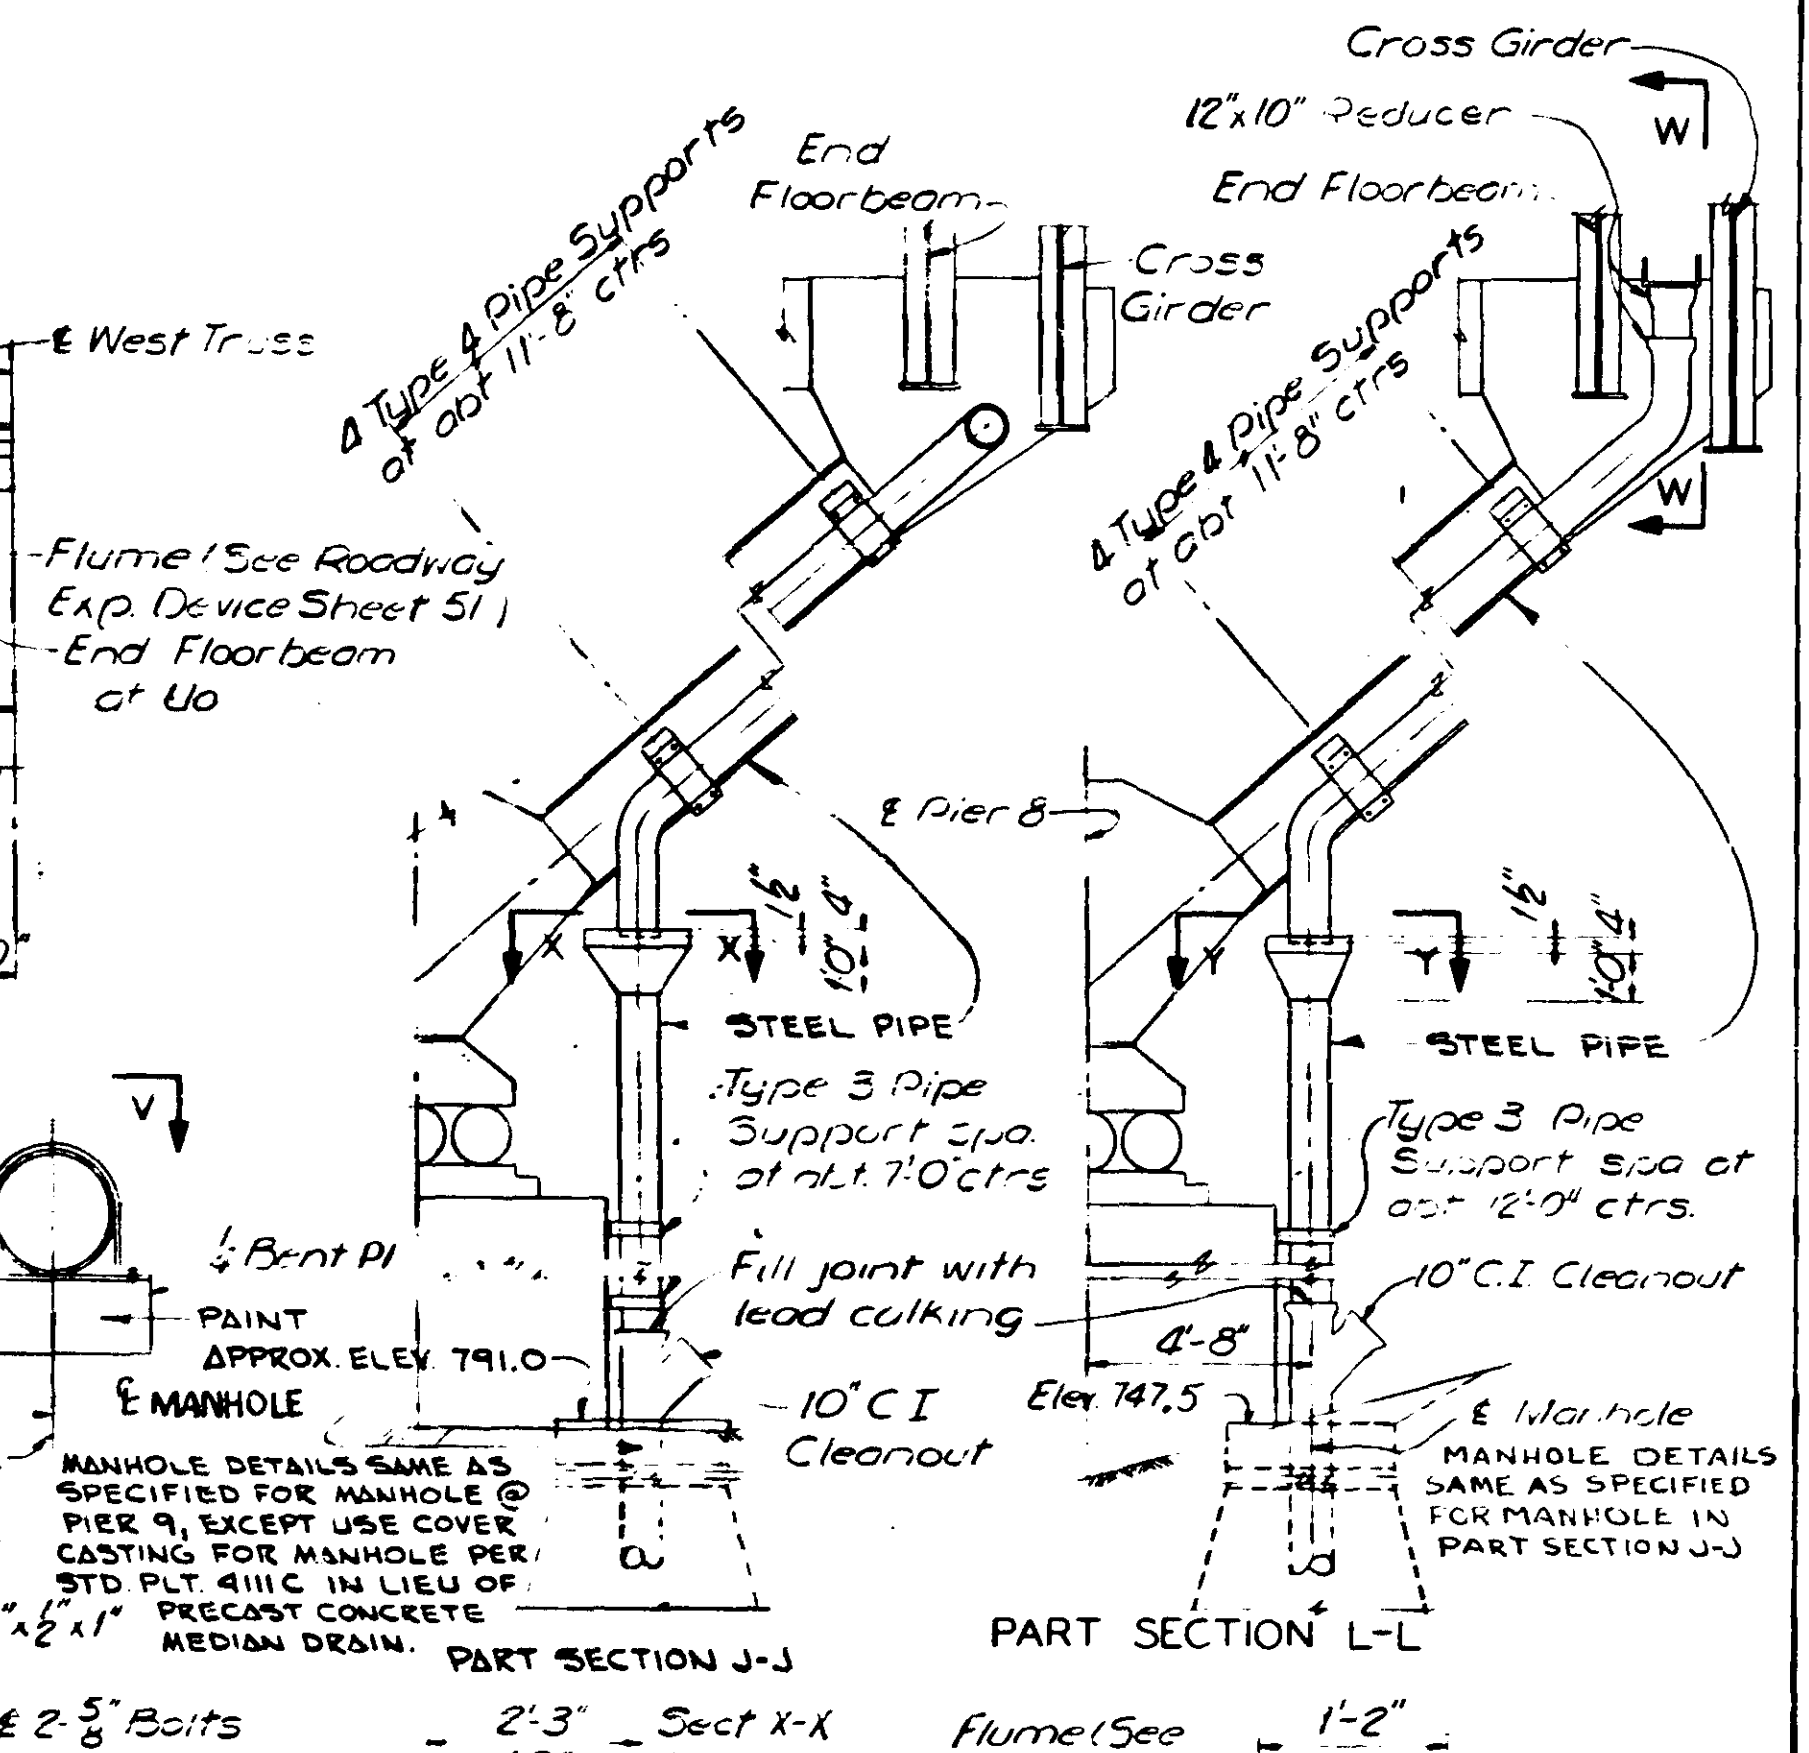 Cross Girder
12"x10" Reducer
W
End Floorbeam
4 Type 4 Pipe Supports
at abt 11'-8" ctrs
End
Floorbeam
Cross
Girder
4 Type 4 Pipe Supports
at abt 11'-8" ctrs
W
℄ West Truss
Flume (See Roadway
Exp. Device Sheet 51)
End Floorbeam
at U0
℄ Pier 8
1½"
1'0" 4"
X X
STEEL PIPE
1½"
1'0" 4"
Y Y
STEEL PIPE
V
Type 3 Pipe
Support spa.
at abt. 7'-0" ctrs
Type 3 Pipe
Support spa at
abt 12'-0" ctrs.
¼ Bent Pl
PAINT
Fill joint with
lead culking
10" C.I. Cleanout
4'-8"
APPROX. ELEV. 791.0
℄ MANHOLE
10" C I
Cleanout
Elev. 747.5
℄ Manhole
MANHOLE DETAILS SAME AS
SPECIFIED FOR MANHOLE @
PIER 9, EXCEPT USE COVER
CASTING FOR MANHOLE PER
STD. PLT. 4111C IN LIEU OF
PRECAST CONCRETE
MEDIAN DRAIN.
"x ½" x 1"
MANHOLE DETAILS
SAME AS SPECIFIED
FOR MANHOLE IN
PART SECTION J-J
PART SECTION J-J
PART SECTION L-L
℄ 2-⅝" Bolts
2'-3"
Sect X-X
Flume (See
1'-2"